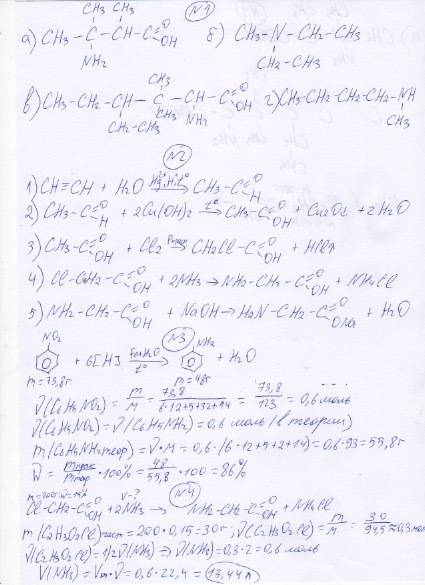 №1
CH3 CH3
а) CH3-C-CH-C=O OH б) CH3-N-CH2-CH3
NH2 CH2-CH3
CH3
в) CH3-CH2-CH-C-CH-C=O OH г) CH3-CH2-CH2-CH2-NH
CH2-CH3 CH3 NH2 CH3
№2
1) CH≡CH + H2O → CH3-C=O H
2) CH3-C=O H + 2Cu(OH)2 t° → CH3-C=O OH + Cu2O↓ + 2H2O
3) CH3-C=O OH + Cl2 → CH2Cl-C=O OH + HCl↑
4) Cl-CH2-C=O OH + 2NH3 → NH2-CH2-C=O OH + NH4Cl
5) NH2-CH2-C=O OH + NaOH → H2N-CH2-C=O ONa + H2O
№3
NO2 NH2
+ 6[H] Fe+H2O t° → + H2O
m=73,8г m=48г
ν(C6H5NO2) = m/M = 73,8/(6·12+5+32+14) = 73,8/123 = 0,6 моль
ν(C6H5NO2) = ν(C6H5NH2) = 0,6 моль (в теории)
m(C6H5NH2теор) = ν·M = 0,6·(6·12+5+2+14) = 0,6·93 = 55,8г
W = mпрак/mтеор · 100% = 48/55,8 · 100 = 86%
№4
m=200г W=15% V-?
Cl-CH2-C=O OH + 2NH3 → NH2-CH2-C=O OH + NH4Cl
m(C2H3O2Cl)чист = 200·0,15 = 30г, ν(C2H3O2Cl) = m/M = 30/94,5 ≈ 0,3 моль
ν(C2H3O2Cl) = 1/2 ν(NH3) ⇒ ν(NH3) = 0,3·2 = 0,6 моль
V(NH3) = Vm·ν = 0,6·22,4 = 13,44л